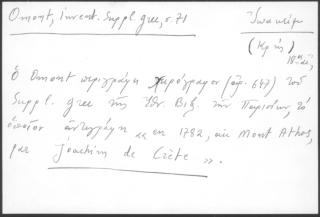 Omont, Invent. Suppl. grec, σ. 71
Ἰωακείμ
(Κρής)
18ος αἰ.
Ὁ Omont περιγράφει χειρόγραφον (ἀρ. 647) τοῦ
Suppl. grec τῆς Ἐθν. Βιβ. τῶν Παρισίων, τὸ
ὁποῖον ἀντεγράφη « en 1782, au Mont Athos,
par Joachim de Crète ».